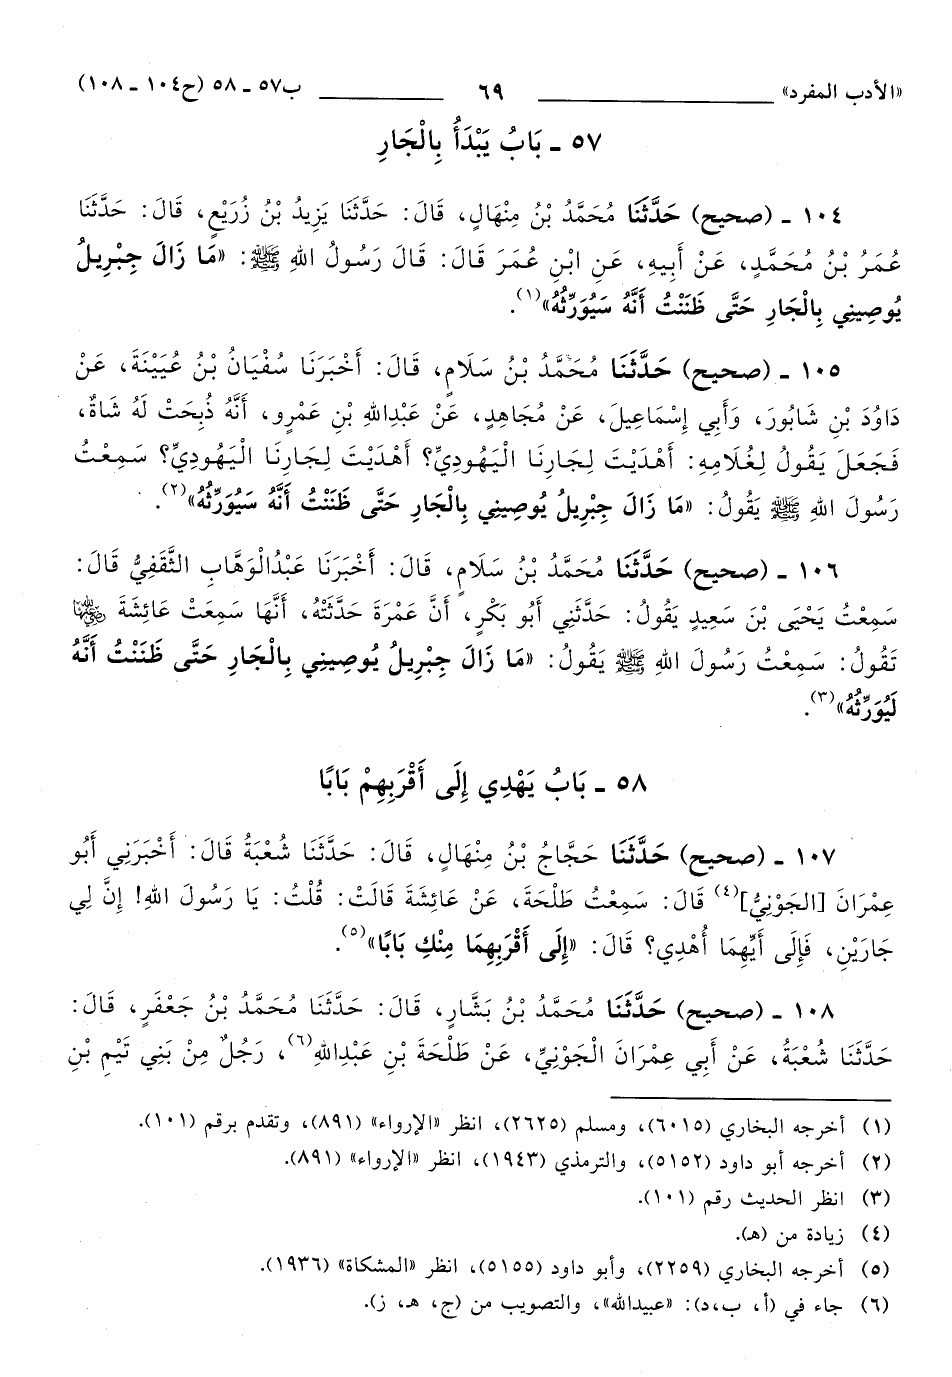 «الأدب المفرد» ٦٩ ب٥٧ ـ ٥٨ (ح١٠٤ ـ ١٠٨)
٥٧ ـ بَابُ يَبْدَأُ بِالْجَارِ
١٠٤ ـ (صحيح) حَدَّثَنَا مُحَمَّدُ بْنُ مِنْهَالٍ، قَالَ: حَدَّثَنَا يَزِيدُ بْنُ زُرَيْعٍ، قَالَ: حَدَّثَنَا
عُمَرُ بْنُ مُحَمَّدٍ، عَنْ أَبِيهِ، عَنِ ابْنِ عُمَرَ قَالَ: قَالَ رَسُولُ اللهِ ﷺ: «مَا زَالَ جِبْرِيلُ
يُوصِينِي بِالْجَارِ حَتَّى ظَنَنْتُ أَنَّهُ سَيُوَرِّثُهُ»(١).
١٠٥ ـ (صحيح) حَدَّثَنَا مُحَمَّدُ بْنُ سَلَامٍ، قَالَ: أَخْبَرَنَا سُفْيَانُ بْنُ عُيَيْنَةَ، عَنْ
دَاوُدَ بْنِ شَابُورَ، وَأَبِي إِسْمَاعِيلَ، عَنْ مُجَاهِدٍ، عَنْ عَبْدِاللهِ بْنِ عَمْرٍو، أَنَّهُ ذُبِحَتْ لَهُ شَاةٌ،
فَجَعَلَ يَقُولُ لِغُلَامِهِ: أَهْدَيْتَ لِجَارِنَا الْيَهُودِيِّ؟ أَهْدَيْتَ لِجَارِنَا الْيَهُودِيِّ؟ سَمِعْتُ
رَسُولَ اللهِ ﷺ يَقُولُ: «مَا زَالَ جِبْرِيلُ يُوصِينِي بِالْجَارِ حَتَّى ظَنَنْتُ أَنَّهُ سَيُوَرِّثُهُ»(٢).
١٠٦ ـ (صحيح) حَدَّثَنَا مُحَمَّدُ بْنُ سَلَامٍ، قَالَ: أَخْبَرَنَا عَبْدُالْوَهَّابِ الثَّقَفِيُّ قَالَ:
سَمِعْتُ يَحْيَى بْنَ سَعِيدٍ يَقُولُ: حَدَّثَنِي أَبُو بَكْرٍ، أَنَّ عَمْرَةَ حَدَّثَتْهُ، أَنَّهَا سَمِعَتْ عَائِشَةَ رضي الله عنها
تَقُولُ: سَمِعْتُ رَسُولَ اللهِ ﷺ يَقُولُ: «مَا زَالَ جِبْرِيلُ يُوصِينِي بِالْجَارِ حَتَّى ظَنَنْتُ أَنَّهُ
لَيُوَرِّثُهُ»(٣).
٥٨ ـ بَابُ يَهْدِي إِلَى أَقْرَبِهِمْ بَابًا
١٠٧ ـ (صحيح) حَدَّثَنَا حَجَّاجُ بْنُ مِنْهَالٍ، قَالَ: حَدَّثَنَا شُعْبَةُ قَالَ: أَخْبَرَنِي أَبُو
عِمْرَانَ [الجَوْنِيُّ](٤) قَالَ: سَمِعْتُ طَلْحَةَ، عَنْ عَائِشَةَ قَالَتْ: قُلْتُ: يَا رَسُولَ اللهِ! إِنَّ لِي
جَارَيْنِ، فَإِلَى أَيِّهِمَا أُهْدِي؟ قَالَ: «إِلَى أَقْرَبِهِمَا مِنْكِ بَابًا»(٥).
١٠٨ ـ (صحيح) حَدَّثَنَا مُحَمَّدُ بْنُ بَشَّارٍ، قَالَ: حَدَّثَنَا مُحَمَّدُ بْنُ جَعْفَرٍ، قَالَ:
حَدَّثَنَا شُعْبَةُ، عَنْ أَبِي عِمْرَانَ الْجَوْنِيِّ، عَنْ طَلْحَةَ بْنِ عَبْدِاللهِ(٦)، رَجُلٌ مِنْ بَنِي تَيْمِ بْنِ
(١) أخرجه البخاري (٦٠١٥)، ومسلم (٢٦٢٥)، انظر «الإرواء» (٨٩١)، وتقدم برقم (١٠١).
(٢) أخرجه أبو داود (٥١٥٢)، والترمذي (١٩٤٣)، انظر «الإرواء» (٨٩١).
(٣) انظر الحديث رقم (١٠١).
(٤) زيادة من (هـ).
(٥) أخرجه البخاري (٢٢٥٩)، وأبو داود (٥١٥٥)، انظر «المشكاة» (١٩٣٦).
(٦) جاء في (أ، ب،د): «عبيدالله»، والتصويب من (ج، هـ، ز).